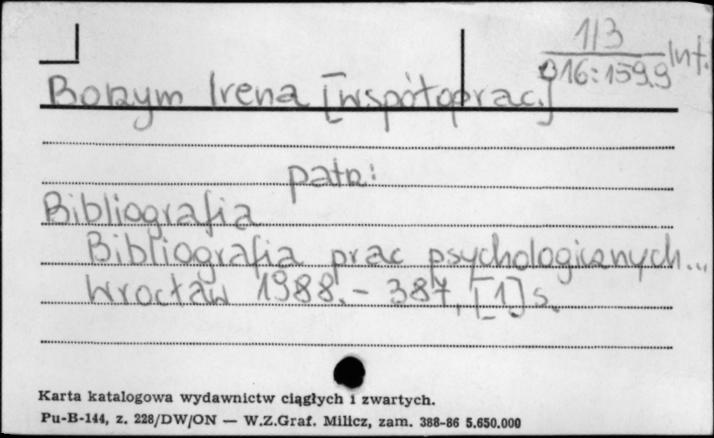 1/3
016:159.9 Int.
Bobrym Irena [współoprac.]
patrz:
Bibliografia
Bibliografia prac psychologicznych...
Wrocław 1988. - 387, [1] s.
Karta katalogowa wydawnictw ciągłych i zwartych.
Pu-B-144, z. 228/DW/ON — W.Z.Graf. Milicz, zam. 388-86 5.650.000